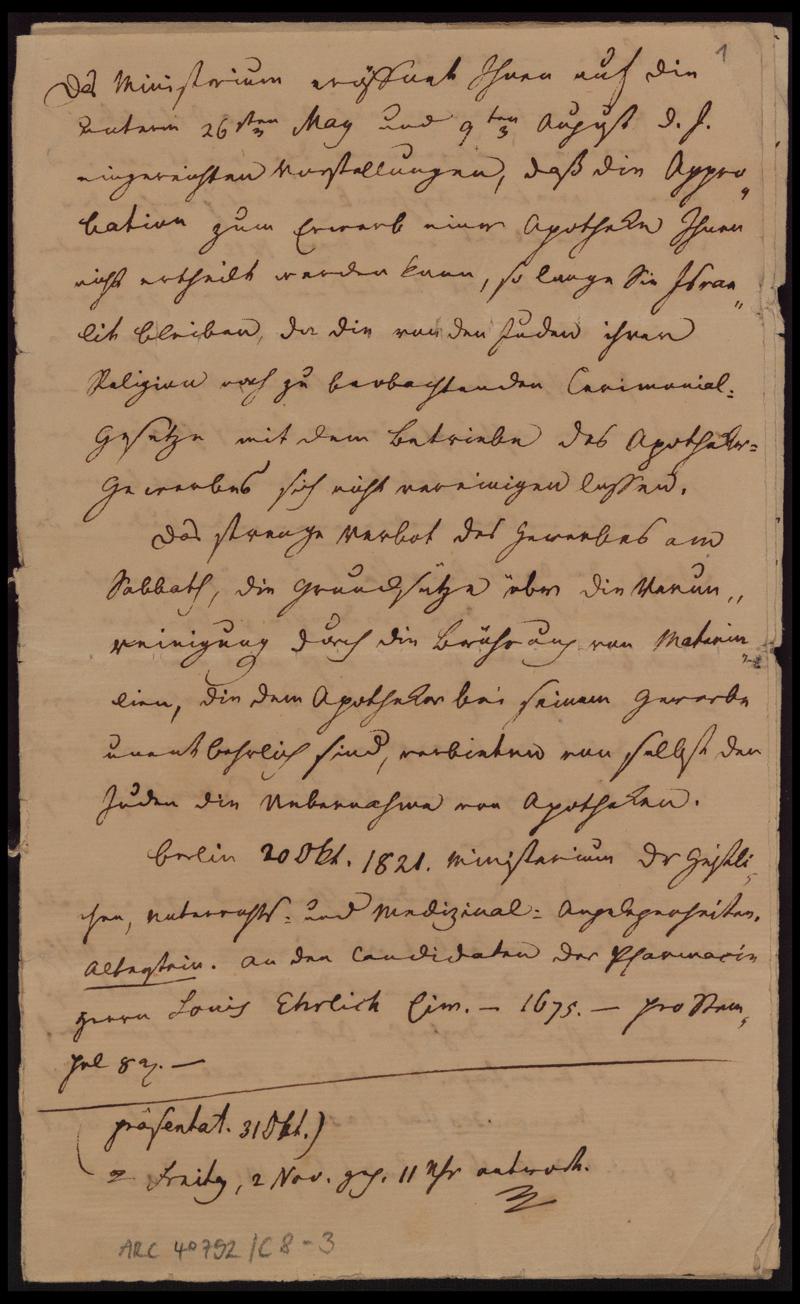 1
Das Ministerium eröffnet Ihnen auf die
unterm 26sten May und 9ten August d. J.
eingereichten Vorstellungen, daß die Appro„
bation zum Erwerb einer Apotheke Ihnen
nicht ertheilt werden kann, so lange Sie Israe„
lit bleiben, da die von den Juden ihrer
Religion nach zu beobachtenden Cerimonial=
Gesetze mit dem Betriebe des Apotheker=
Gewerbes sich nicht vereinigen lassen.
Das strenge Verbot des Gewerbes am
Sabbath, die Grundsätze über die Verun„
reinigung durch die Berührung von Materia„
lien, die dem Apotheker bei seinem Gewerbe
unentbehrlich sind, verbieten von selbst den
Juden die Uebernahme von Apotheken.
Berlin 20 Okt. 1821. Ministerium der Geistli„
chen, Unterrichts= und Medizinal= Angelegenheiten.
Altenstein. An den Candidaten der Pharmacie
Herrn Louis Ehrlich hier. — 1675. — pro Stem„
pel 8 g. —
(präsentat. 31 Okt.)
Freitag, 2 Nov. 11 Uhr
ARC 4º 792 / C 8 - 3